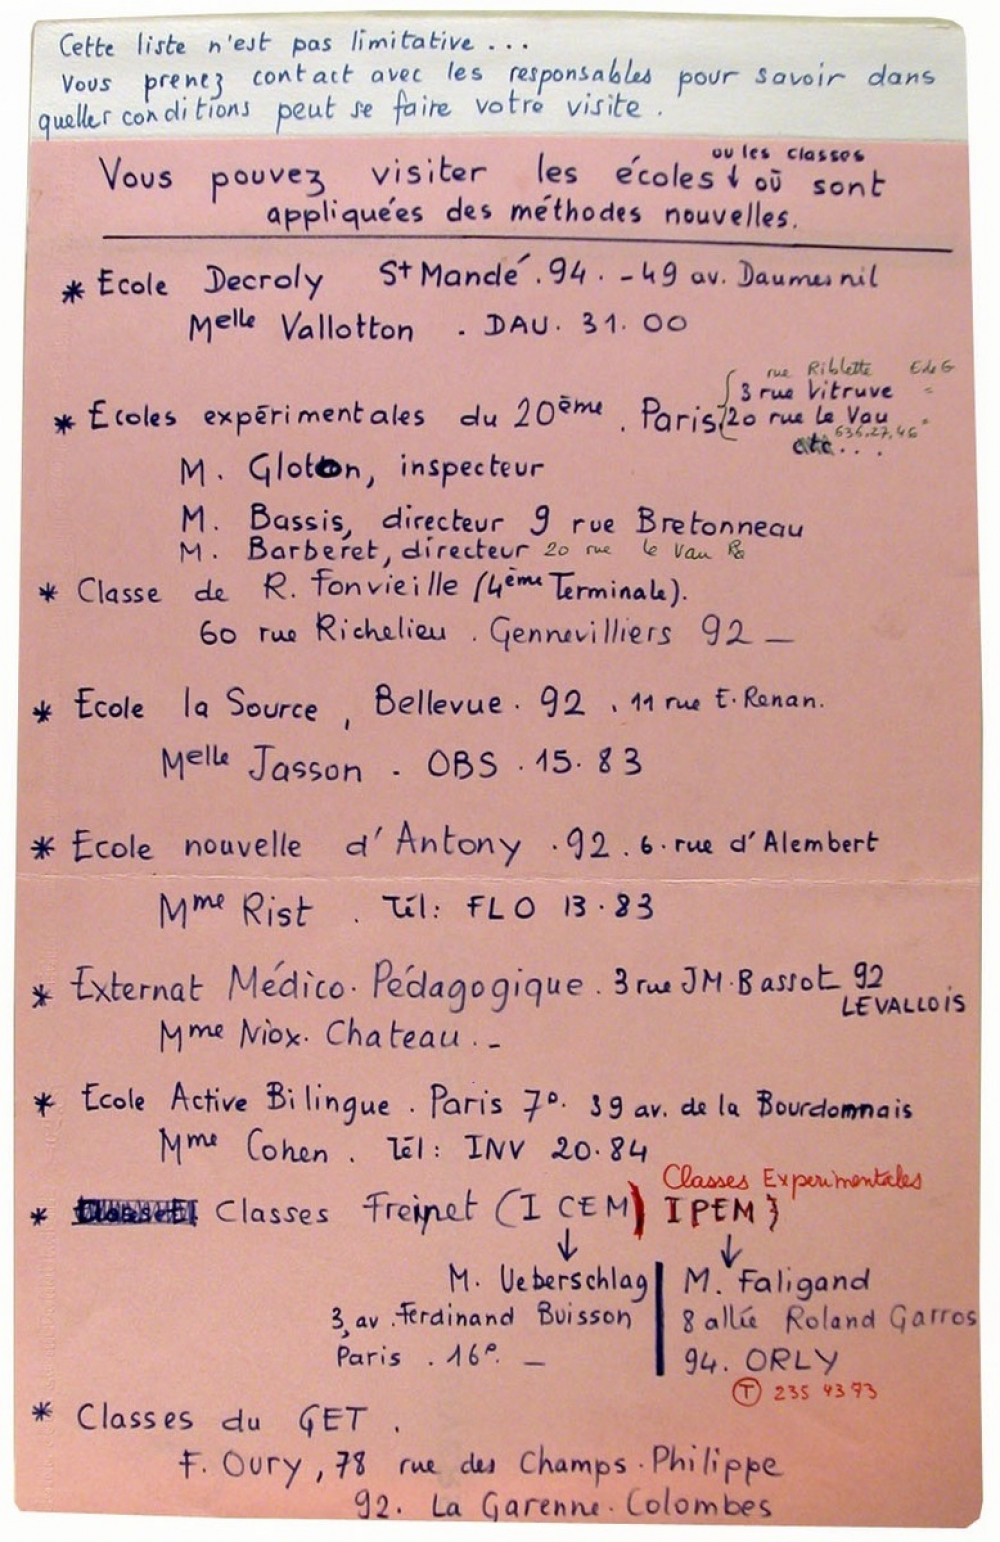 Cette liste n'est pas limitative...
Vous prenez contact avec les responsables pour savoir dans
quelles conditions peut se faire votre visite.
ou les classes
Vous pouvez visiter les écoles ↓ où sont
appliquées des méthodes nouvelles.
* Ecole Decroly St Mandé.94. - 49 av. Daumesnil
Melle Vallotton . DAU. 31. 00
rue Riblette E de G
3 rue Vitruve "
* Ecoles expérimentales du 20ème. Paris 20 rue Le Vau "
636.27.46
etc...
M. Gloton, inspecteur
M. Bassis, directeur 9 rue Bretonneau
M. Barberet, directeur 20 rue le Vau
* Classe de R. Fonvieille (4ème Terminale).
60 rue Richelieu . Gennevilliers 92 —
* Ecole la Source, Bellevue. 92 . 11 rue E. Renan.
Melle Jasson . OBS . 15. 83
* Ecole nouvelle d'Antony .92 . 6. rue d'Alembert
Mme Rist . Tél: FLO 13.83
* Externat Médico. Pédagogique. 3 rue JM. Bassot 92
LEVALLOIS
Mme Niox. Chateau. -
* Ecole Active Bilingue. Paris 7°. 39 av. de la Bourdonnais
Mme Cohen . Tél: INV 20.84
Classes Experimentales
* Classes Freinet (ICEM) IPEM }
↓ ↓
M. Ueberschlag M. Faligand
3, av. Ferdinand Buisson 8 allée Roland Garros
Paris . 16e. — 94. ORLY
(T) 235 43 73
* Classes du GET .
F. Oury, 78 rue des Champs. Philippe
92. La Garenne. Colombes